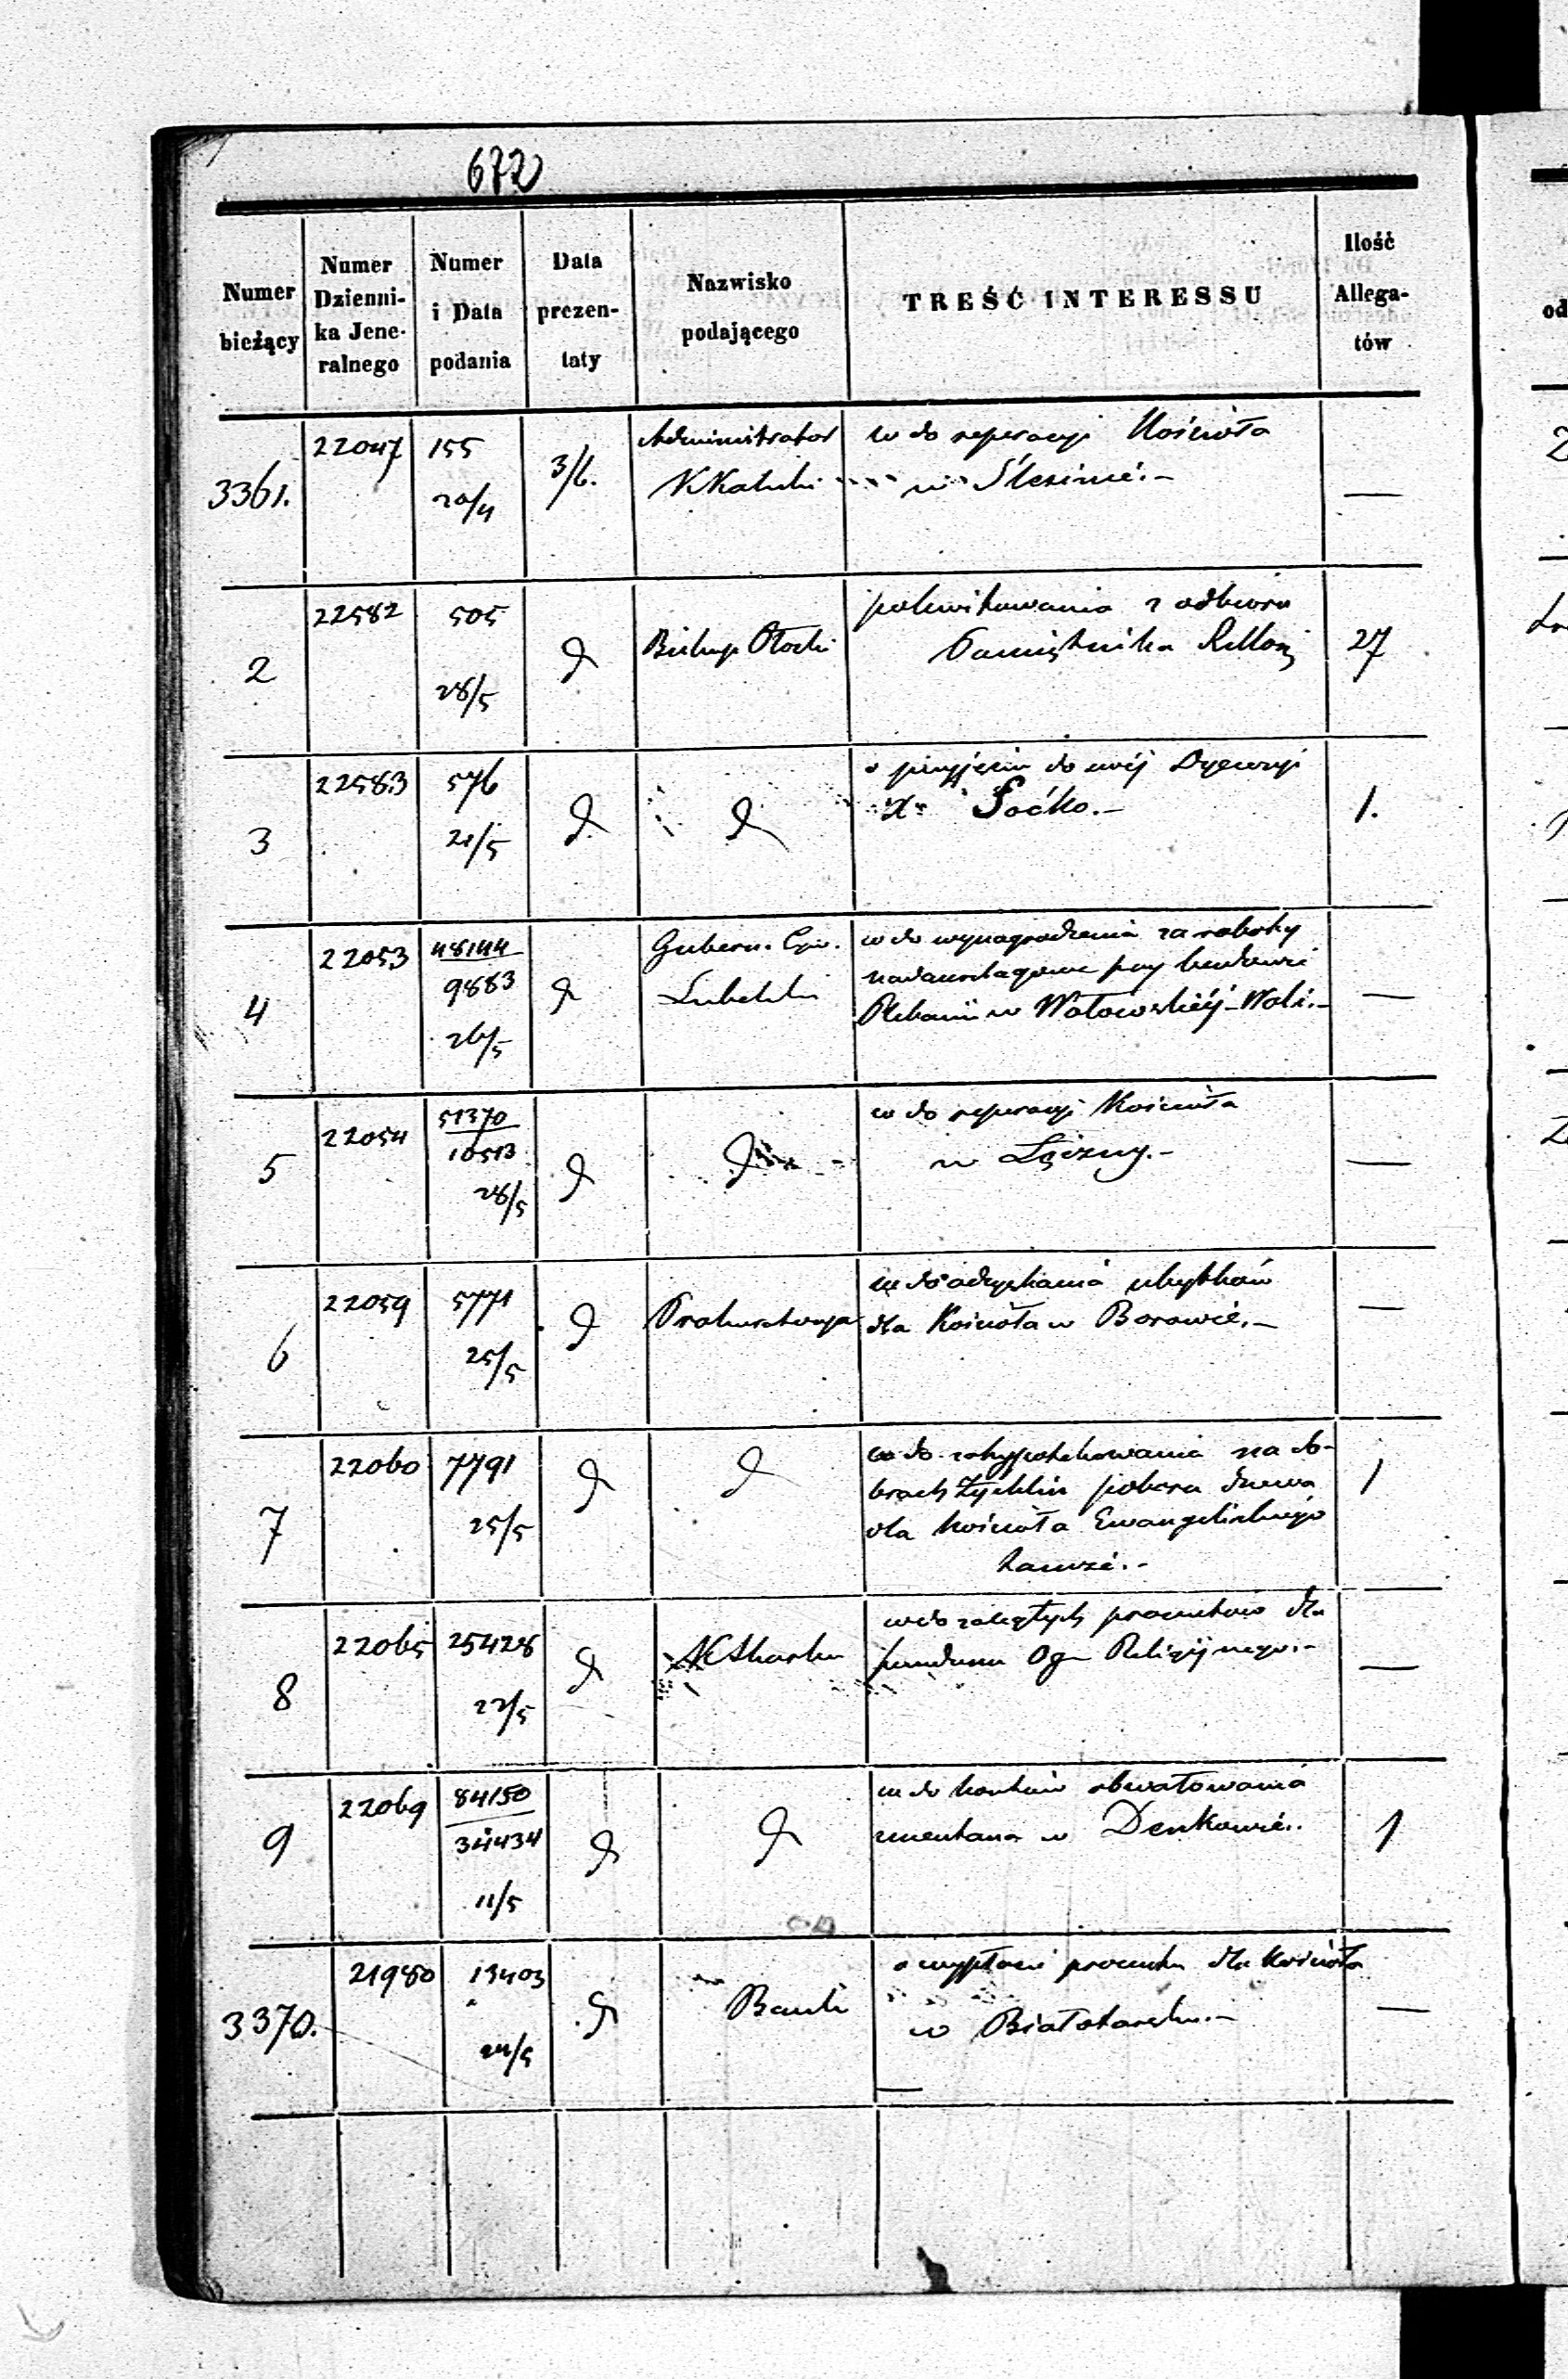 672
Numer bieżący
Numer Dzienni-ka Jene-ralnego
Numer i Data podania
Data prezen-taty
Nazwisko podającego
TREŚĆ INTERESSU
Ilość Allega-tów
3361. 22047 155 20/4 3/6. Administrator w do reperacyi Kościoła —
w Ślesinie.-
2 22582 505 28/5 d Biskup Płocki pokwitowania z odbioru 27
Pamiętnika Relloij
3 22583 576 21/5 d d o przyjęciu do swéj Dyecezyi 1.
Xa Soćko.-
4 22053 48144 9883 26/5 d Gubern. Cyw. w do wynagrodzenia za roboty —
Lubelski nadanszlagowe przy budowie
Plebanii w Wołowskiéj-Woli.-
5 22054 51370 10513 28/5 d d w do reperacyi Kościoła —
w Łęczny.-
6 22059 5771 25/5 d Prokuratorya w do odzyskania ubytków —
dla Kościoła w Borowie.-
7 22060 7791 25/5 d d w do zahypotekowania na do- 1
brach Żychlin poboru drzewa
dla Kościoła Ewangelickiego
tamże.-
8 22065 25428 22/5 d K Skarbu w do zaległych procentów dla —
funduszu Og Religijnego.-
9 22069 84150 34434 11/5 d d w do kosztów obwałowania 1
cmentarza w Denkowie.
3370. 21980 13403 24/5 d Bank o wypłacie procentu dla Kościoła —
w Białotarsku.-